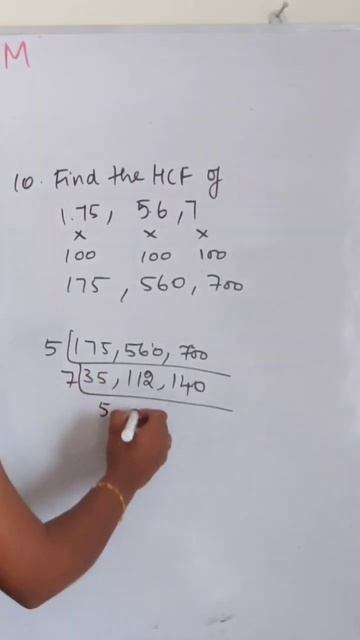 M
10. Find the HCF of
1.75, 5.6, 7
× × ×
100 100 100
175, 560, 700
5 175, 560, 700
7 35, 112, 140
5